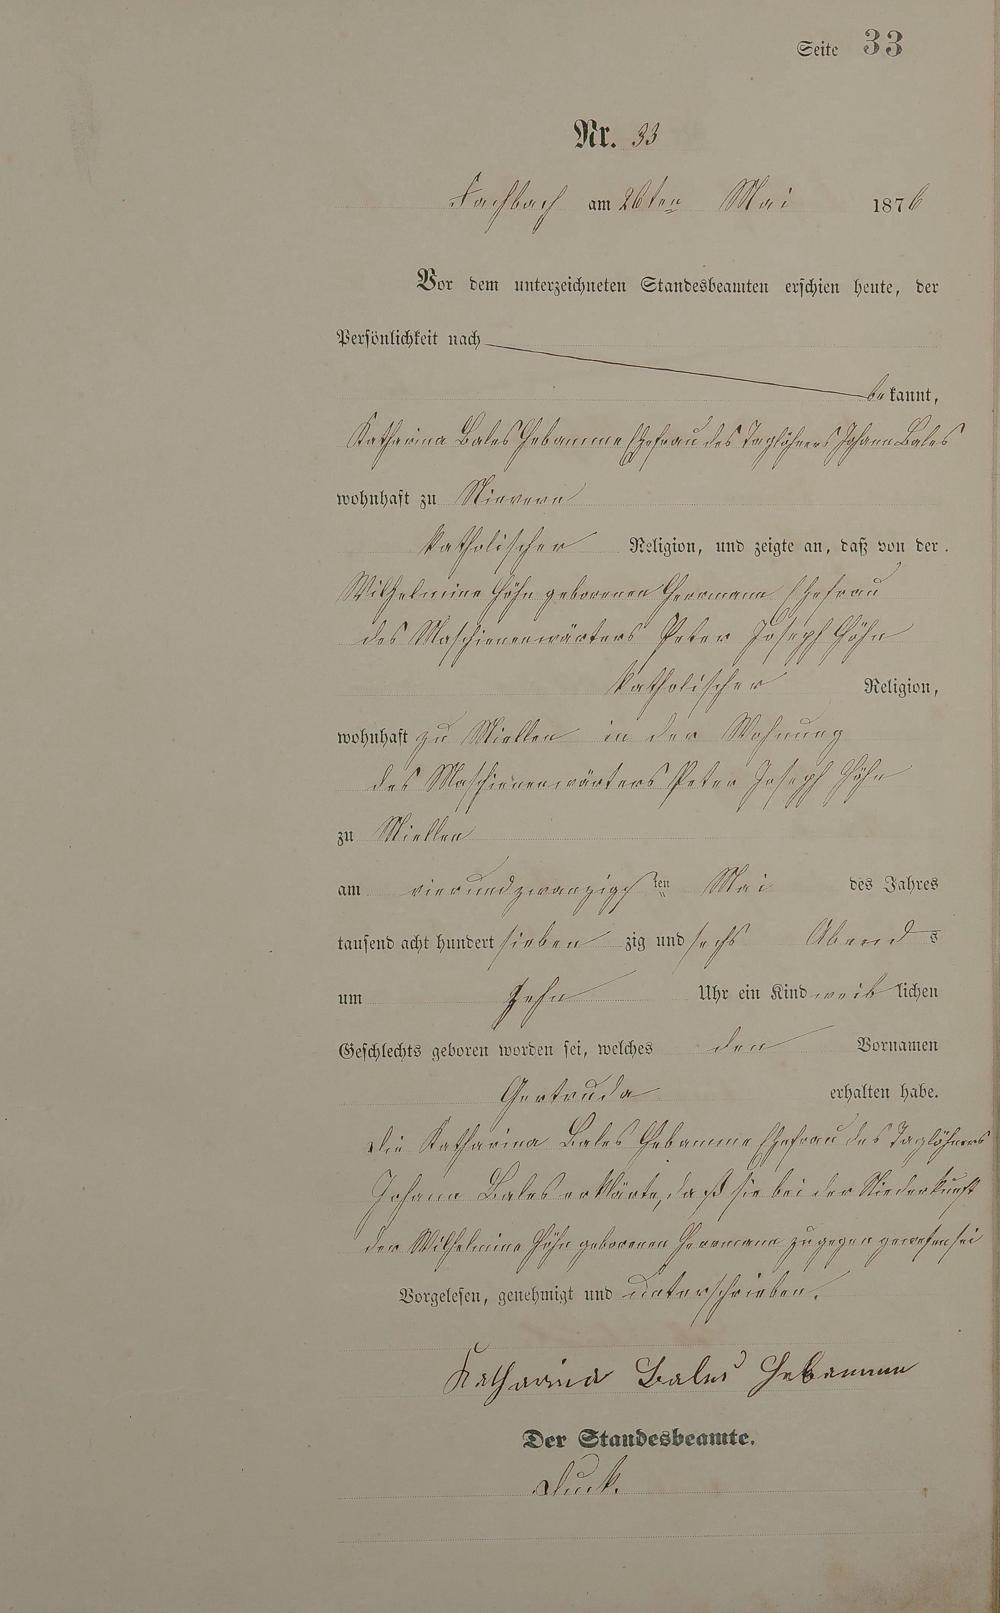 Seite 33
Nr. 33
Fachbach am 26ten Mai 1876
Vor dem unterzeichneten Standesbeamten erschien heute, der
Persönlichkeit nach
bekannt,
Katharina Bales Hebamme Ehefrau des Taglöhners Johann Bales
wohnhaft zu Nievern
katholischer Religion, und zeigte an, daß von der
Wilhelmine Höhn geborenen Herrmann Ehefrau
des Maschienenwärters Peter Joseph Höhn
katholischer Religion,
wohnhaft zu Miellen in der Wohnung
des Maschienenwärters Peter Joseph Höhn
zu Miellen
am vierundzwanzigsten Mai des Jahres
tausend acht hundert siebenzig und sechs Abends
um zehn Uhr ein Kind weiblichen
Geschlechts geboren worden sei, welches den Vornamen
Gertruda erhalten habe.
Die Katharina Bales Hebamme Ehefrau des Taglöhners
Johann Bales erklärte, daß sie bei der Niederkunft
der Wilhelmine Höhn geborenen Herrmann zugegen gewesen sei
Vorgelesen, genehmigt und unterschrieben.
Katharina Bales Hebamme
Der Standesbeamte.